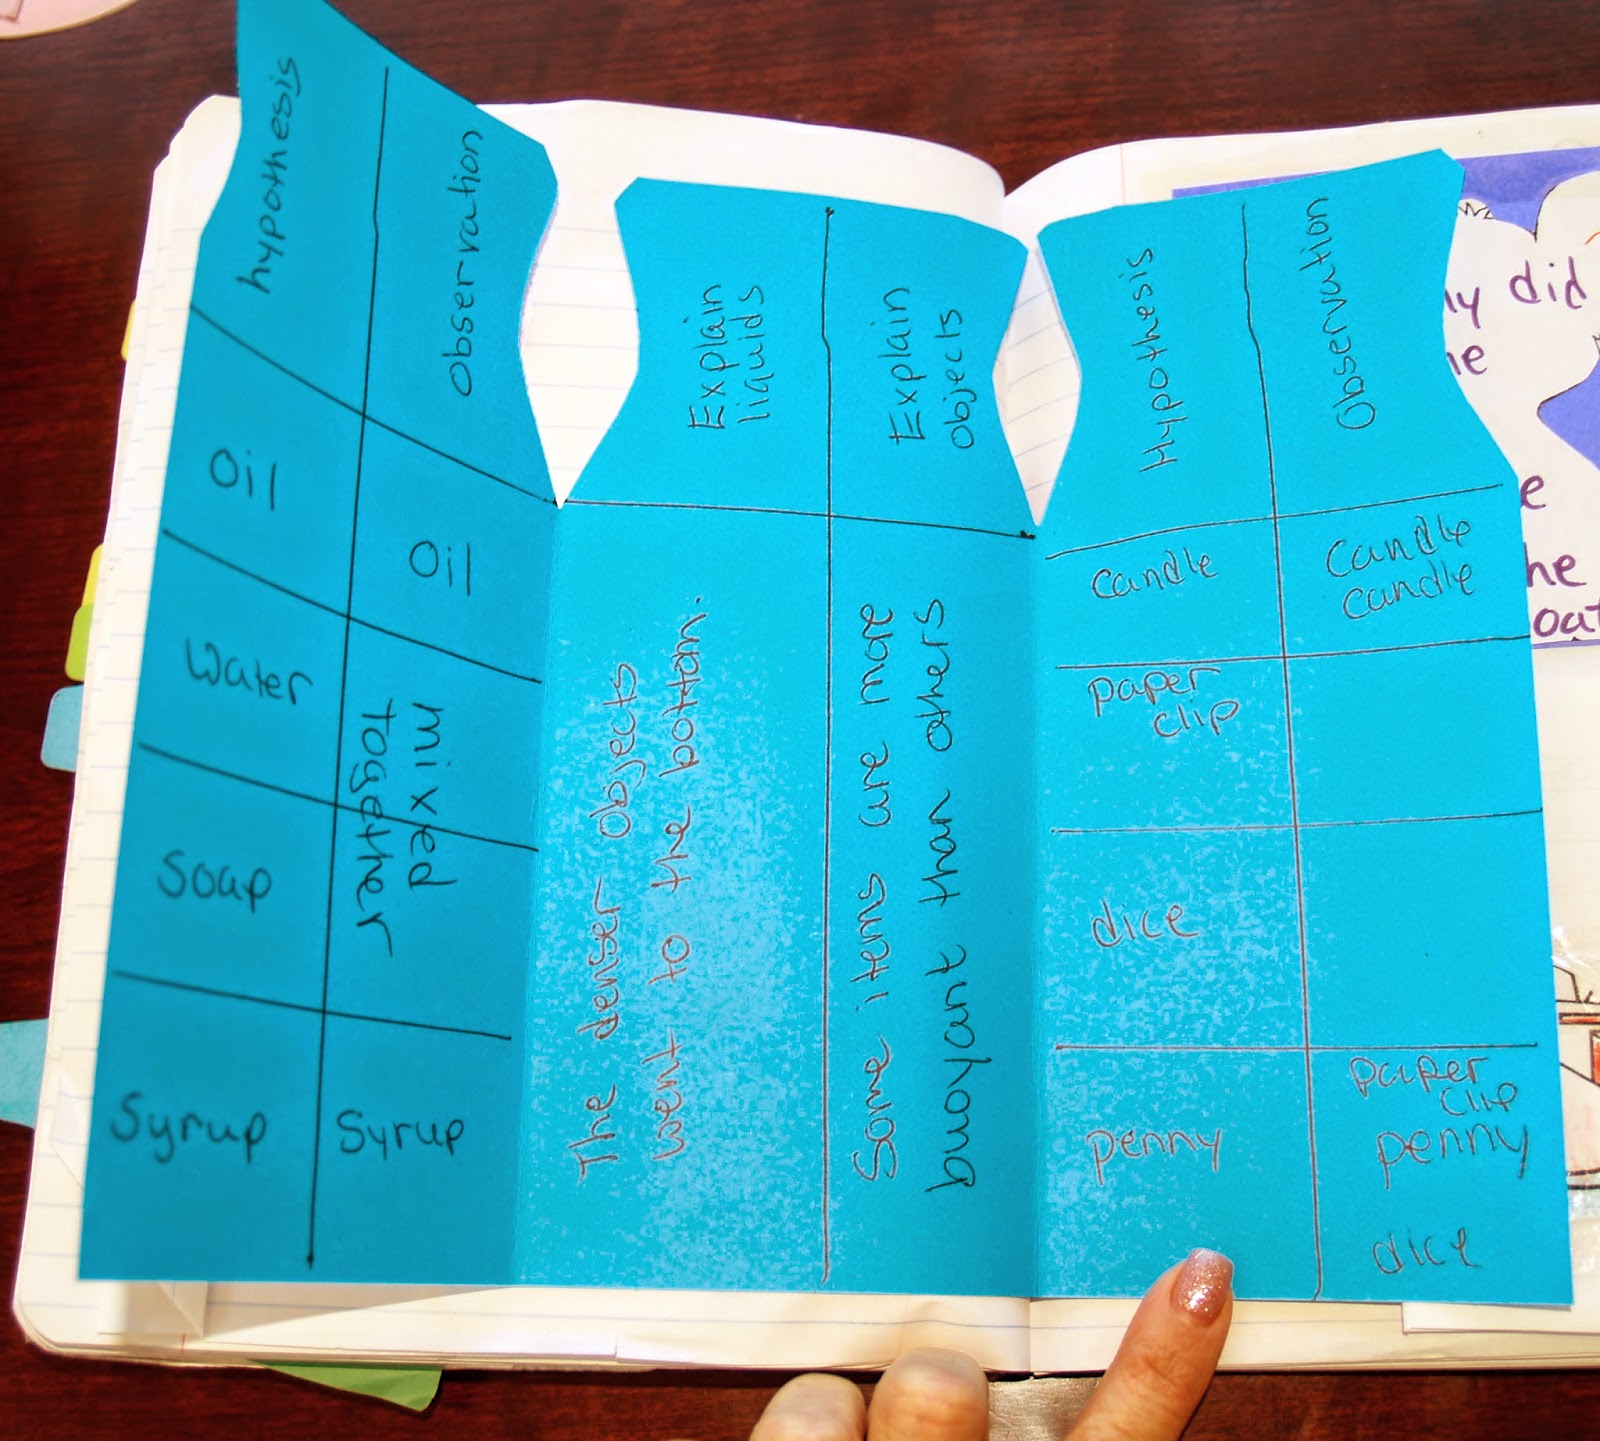 hypothesis
Observation
Oil
Oil
Water
mixed
Together
Soap
Syrup
Syrup
Explain
liquids
The denser objects
went to the bottom.
Explain
objects
Some items are more
buoyant than others
Hypothesis
Observation
candle
Candle
candle
paper
clip
dice
penny
paper
clip
penny
dice
did